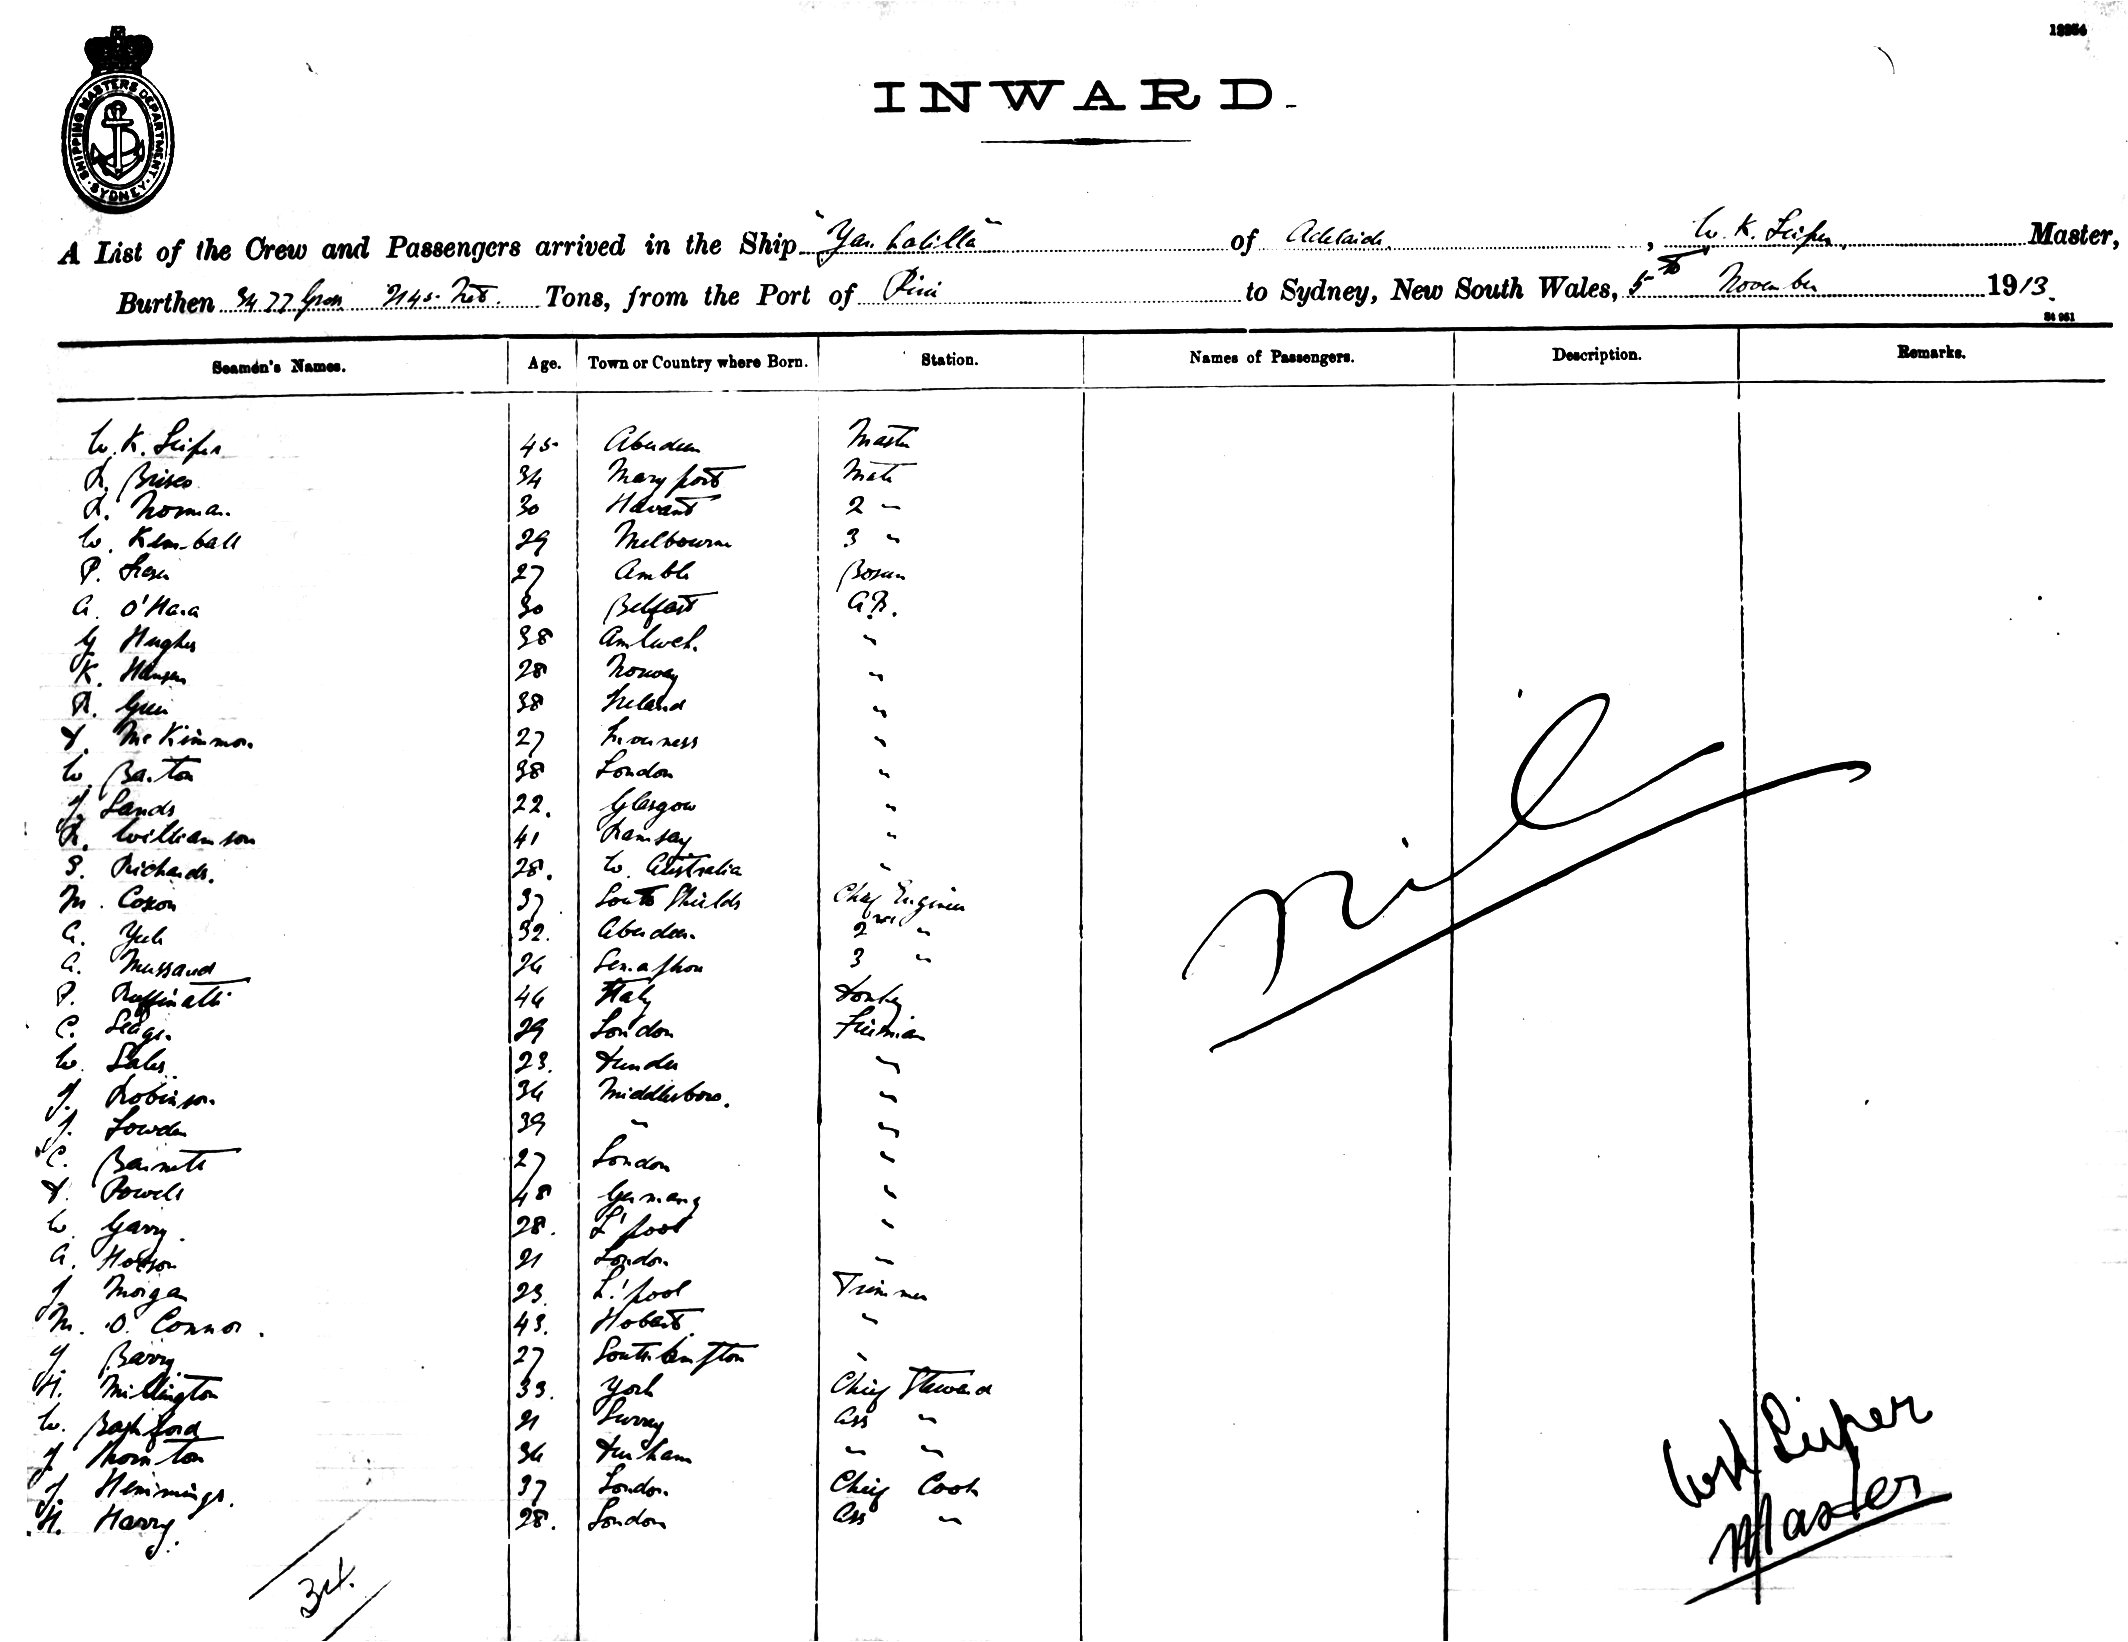 12254
SHIPPING MASTERS DEPARTMENT. SYDNEY
INWARD.
A List of the Crew and Passengers arrived in the Ship "Yankalilla" of Adelaide, W. K. Leiper, Master,
Burthen 3477 Gross 2145 Net. Tons, from the Port of Pirie to Sydney, New South Wales, 5th November 1913.
St 961
Seamen's Names. Age. Town or Country where Born. Station. Names of Passengers. Description. Remarks.
W. K. Leiper 45 Aberdeen Master
R. Brisco 34 Maryport Mate
R. Norman 30 Havant 2 "
W. Kimball 29 Melbourne 3 "
P. 27 Amble Bosun
A. O'Hara 30 Belfast A.B.
G Hughes 38 Amlwch. "
K. Hansen 28 Norway "
R. Green 38 Ireland "
D. McKinnon 27 Inverness "
W. Barton 38 London "
J. Sands 22. Glasgow "
R. Williamson 41 Ramsay "
S. Richards. 28. W. Australia "
M. Coxon 37 South Shields Chief Engineer
A. Yule 32. Aberdeen 2nd "
A. Mussared 24 Semaphore 3 "
P. Ruffinatti 44 Italy Donkey
C. 29 London Fireman
W. Sales 23. Dundee "
J. Robinson 34 Middlesboro. "
J. Lowden 39 " "
C. Barnett 27 London "
D. Powels 48 Germany "
W. Garry. 28. L'pool "
A. Hobson 21 London "
J. Morgan 23. L'pool Trimmer
M. O. Connor. 43. Hobart. "
J. Barry 27 Southampton "
H. Millington 33. York Chief Steward
W. Bashford 21 Surrey Ass "
J Thornton 34 Durham " "
J. Hemmings. 37 London. Chief Cook
H. Harry. 28. London Ass "
Nil
34.
WK Leiper
Master